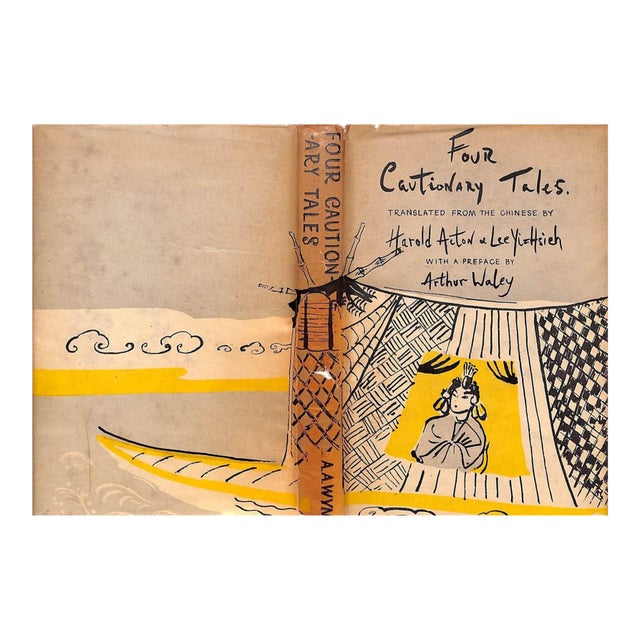 FOUR CAUTION-
ARY TALES
A.A.WYN
Four
Cautionary Tales.
TRANSLATED FROM THE CHINESE BY
Harold Acton & Lee Yi-Hsieh
WITH A PREFACE BY
Arthur Waley